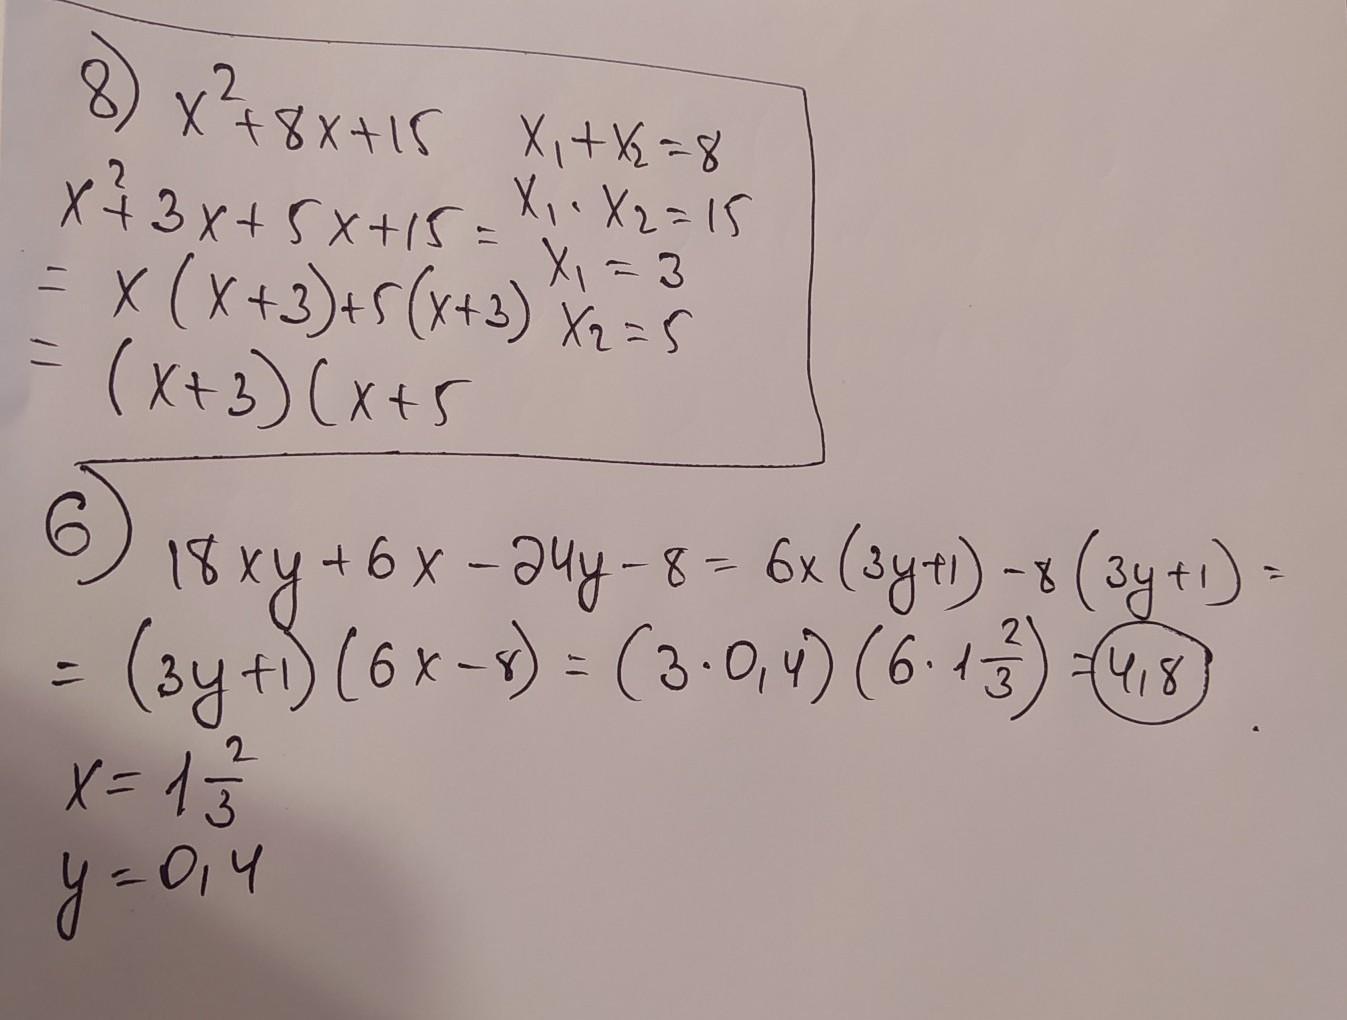 8) x²+8x+15 x₁+x₂=8
x²+3x+5x+15= x₁·x₂=15
= x(x+3)+5(x+3) x₁=3
x₂=5
= (x+3)(x+5
6) 18xy+6x-24y-8= 6x(3y+1)-8(3y+1)=
= (3y+1)(6x-8)=(3·0,4)(6·1 2/3)=4,8
x= 1 2/3
y=0,4